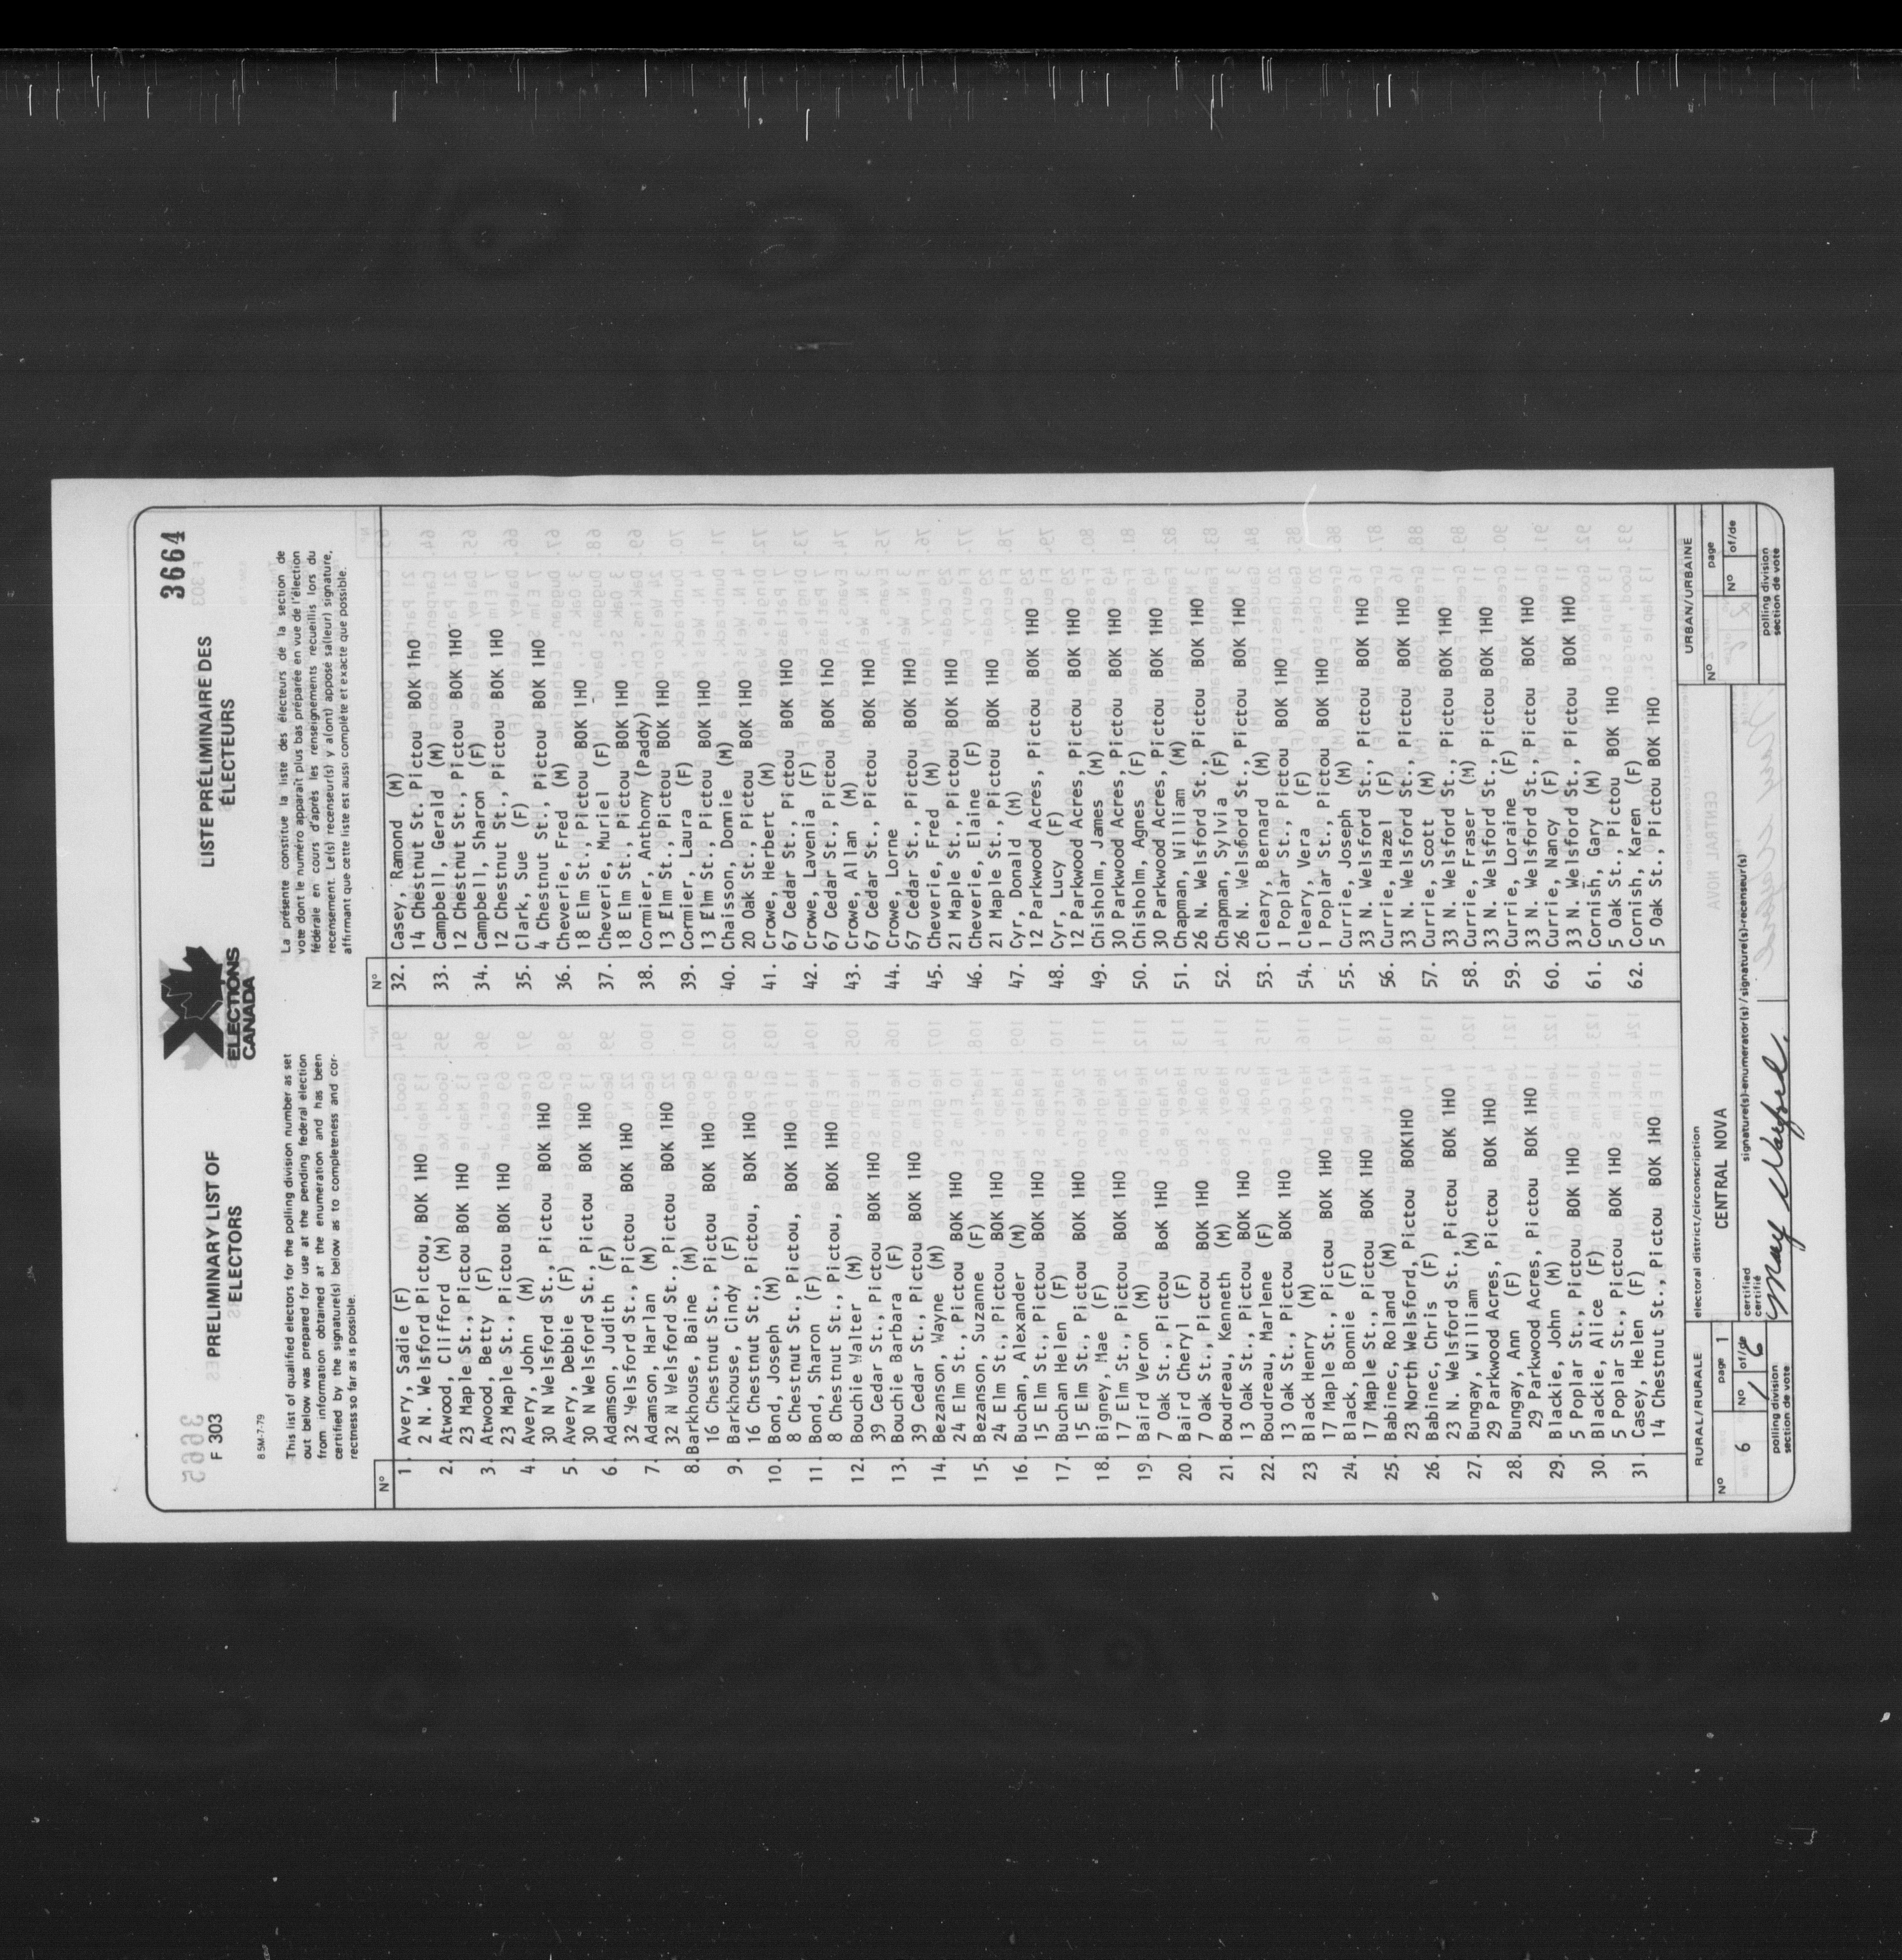 3664
F 303
PRELIMINARY LIST OF
ELECTORS
ELECTIONS
CANADA
LISTE PRÉLIMINAIRE DES
ÉLECTEURS
8 5M-7-79
This list of qualified electors for the polling division number as set
out below was prepared for use at the pending federal election
from information obtained at the enumeration and has been
certified by the signature(s) below as to completeness and cor-
rectness so far as is possible.
La présente constitue la liste des électeurs de la section de
vote dont le numéro apparaît plus bas préparée en vue de l'élection
fédérale en cours d'après les renseignements recueillis lors du
recensement. Le(s) recenseur(s) y a(ont) apposé sa(leur) signature,
affirmant que cette liste est aussi complète et exacte que possible.
Nº
1. Avery, Sadie (F)
2 N. Welsford Pictou, BOK 1HO
2. Atwood, Clifford (M)
23 Maple St., Pictou BOK 1HO
3. Atwood, Betty (F)
23 Maple St., Pictou BOK 1HO
4. Avery, John (M)
30 N Welsford St., Pictou BOK 1HO
5. Avery, Debbie (F)
30 N Welsford St., Pictou BOK 1HO
6. Adamson, Judith (F)
32 Welsford St., Pictou BOK 1HO
7. Adamson, Harlan (M)
32 N Welsford St., Pictou BOK 1HO
8. Barkhouse, Baine (M)
16 Chestnut St., Pictou BOK 1HO
9. Barkhouse, Cindy (F)
16 Chestnut St., Pictou, BOK 1HO
10. Bond, Joseph (M)
8 Chestnut St., Pictou, BOK 1HO
11. Bond, Sharon (F)
8 Chestnut St., Pictou, BOK 1HO
12. Bouchie Walter (M)
39 Cedar St., Pictou BOK 1HO
13. Bouchie Barbara (F)
39 Cedar St., Pictou BOK 1HO
14. Bezanson, Wayne (M)
24 Elm St., Pictou BOK 1HO
15. Bezanson, Suzanne (F)
24 Elm St., Pictou BOK 1HO
16. Buchan, Alexander (M)
15 Elm St., Pictou BOK 1HO
17. Buchan Helen (F)
15 Elm St., Pictou BOK 1HO
18. Bigney, Mae (F)
17 Elm St., Pictou BOK 1HO
19. Baird Veron (M)
7 Oak St., Pictou BoK 1HO
20. Baird Cheryl (F)
7 Oak St., Pictou BOK 1HO
21. Boudreau, Kenneth (M)
13 Oak St., Pictou BOK 1HO
22. Boudreau, Marlene (F)
13 Oak St., Pictou BOK 1HO
23 Black Henry (M)
17 Maple St., Pictou BOK 1HO
24. Black, Bonnie (F)
17 Maple St., Pictou BOK 1HO
25. Babinec, Roland (M)
23 North Welsford, Pictou BOK1HO
26. Babinec, Chris (F)
23 N. Welsford St., Pictou BOK 1HO
27. Bungay, William (M)
29 Parkwood Acres, Pictou BOK 1HO
28. Bungay, Ann (F)
29 Parkwood Acres, Pictou BOK 1HO
29. Blackie, John (M)
5 Poplar St., Pictou BOK 1HO
30. Blackie, Alice (F)
5 Poplar St., Pictou BOK 1HO
31. Casey, Helen (F)
14 Chestnut St., Pictou BOK 1HO
Nº
32. Casey, Ramond (M)
14 Chestnut St. Pictou BOK 1hO
33. Campbell, Gerald (M)
12 Chestnut St., Pictou BOK 1HO
34. Campbell, Sharon (F)
12 Chestnut St., Pictou BOK 1HO
35. Clark, Sue (F)
4 Chestnut St., Pictou BOK 1HO
36. Cheverie, Fred (M)
18 Elm St., Pictou BOK 1HO
37. Cheverie, Muriel (F)
18 Elm St., Pictou BOK 1HO
38. Cormier, Anthony (Paddy)
13 Elm St., Pictou BOK 1HO
39. Cormier, Laura (F)
13 Elm St., Pictou BOK 1HO
40. Chaisson, Donnie (M)
20 Oak St., Pictou BOK 1HO
41. Crowe, Herbert (M)
67 Cedar St., Pictou BOK 1HO
42. Crowe, Lavenia (F)
67 Cedar St., Pictou BOK 1hO
43. Crowe, Allan (M)
67 Cedar St., Pictou BOK 1HO
44. Crowe, Lorne
67 Cedar St., Pictou BOK 1HO
45. Cheverie, Fred (M)
21 Maple St., Pictou BOK 1HO
46. Cheverie, Elaine (F)
21 Maple St., Pictou BOK 1HO
47. Cyr, Donald (M)
12 Parkwood Acres, Pictou BOK 1HO
48. Cyr, Lucy (F)
12 Parkwood Acres, Pictou BOK 1HO
49. Chisholm, James (M)
30 Parkwood Acres, Pictou BOK 1HO
50. Chisholm, Agnes (F)
30 Parkwood Acres, Pictou BOK 1HO
51. Chapman, William (M)
26 N. Welsford St., Pictou BOK 1HO
52. Chapman, Sylvia (F)
26 N. Welsford St., Pictou BOK 1HO
53. Cleary, Bernard (M)
1 Poplar St., Pictou BOK 1HO
54. Cleary, Vera (F)
1 Poplar St., Pictou BOK 1HO
55. Currie, Joseph (M)
33 N. Welsford St., Pictou BOK 1HO
56. Currie, Hazel (F)
33 N. Welsford St., Pictou BOK 1HO
57. Currie, Scott (M)
33 N. Welsford St., Pictou BOK 1HO
58. Currie, Fraser (M)
33 N. Welsford St., Pictou BOK 1HO
59. Currie, Loraine (F)
33 N. Welsford St., Pictou BOK 1HO
60. Currie, Nancy (F)
33 N. Welsford St., Pictou BOK 1HO
61. Cornish, Gary (M)
5 Oak St., Pictou BOK 1HO
62. Cornish, Karen (F)
5 Oak St., Pictou BOK 1HO
RURAL/RURALE
Nº
6
page 1
Nº 1
of/de 6
polling division
section de vote
electoral district/circonscription
CENTRAL NOVA
certified
certifié
signature(s)-enumerator(s)/signature(s)-recenseur(s)
May
URBAN/URBAINE
Nº
page
Nº
of/de
polling division
section de vote